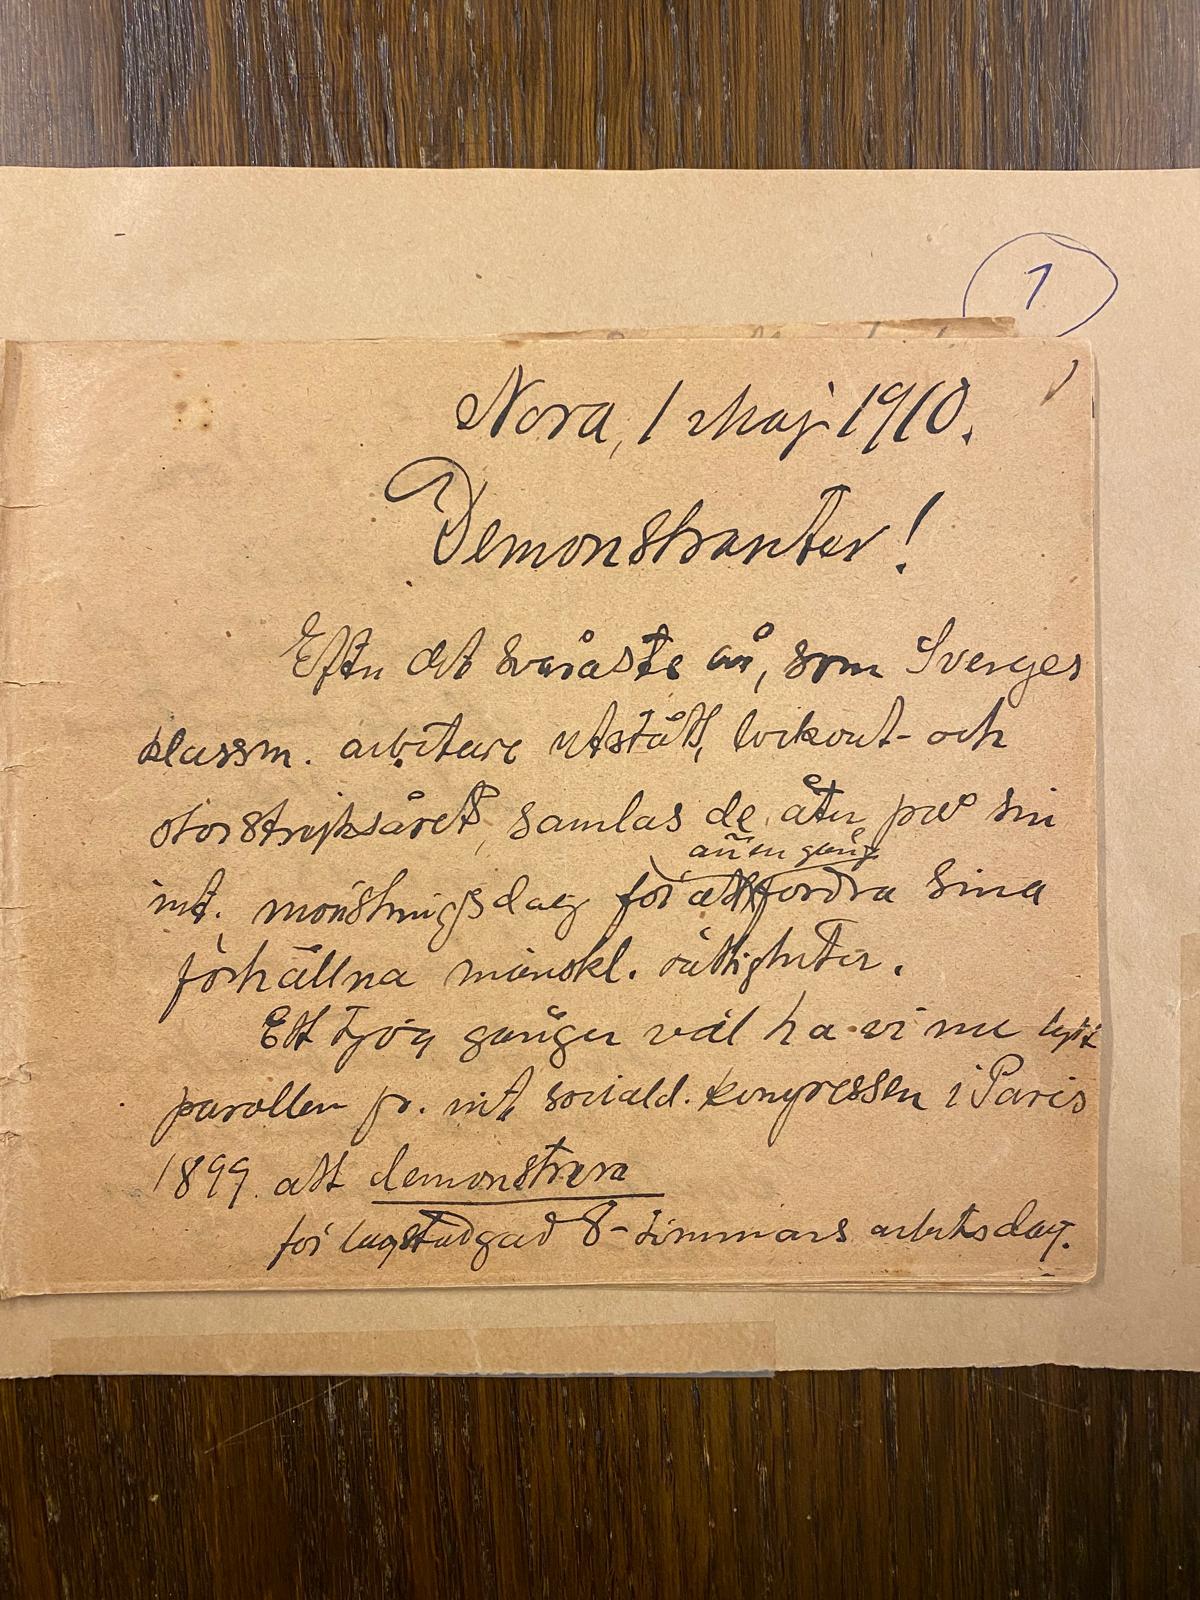 1
Nora, 1 Maj 1910.
Demonstranter!
Efter det svåraste år, som Sveriges
klassm. arbetare utstått, lockout- och
storstrejksåret, samlas de åter på sin
ännu en gång
int. mönstringsdag för att fordra sina
förhållna mänskl. rättigheter.
Ett tjog gånger väl ha vi nu lytt
parollen fr. int. sociald. kongressen i Paris
1899 att demonstrera
för lagstadgad 8-timmars arbetsdag.